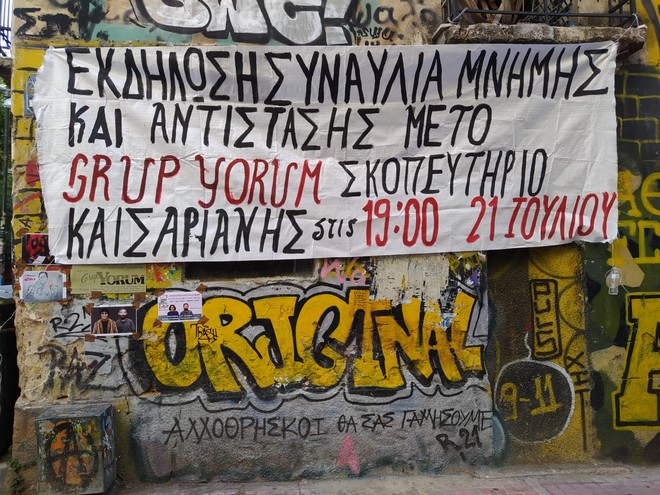 ΕΚΔΗΛΩΣΗ ΣΥΝΑΥΛΙΑ ΜΝΗΜΗΣ
ΚΑΙ ΑΝΤΙΣΤΑΣΗΣ ΜΕ ΤΟ
GRUP YORUM ΣΚΟΠΕΥΤΗΡΙΟ
ΚΑΙΣΑΡΙΑΝΗΣ στις 19:00 21 ΙΟΥΛΙΟΥ
YORUM
R21
ORIGINAL
9-11
ΑΛΛΟΘΡΗΣΚΟΙ ΘΑ ΣΑΣ ΓΑΜΗΣΟΥΜΕ
R.21